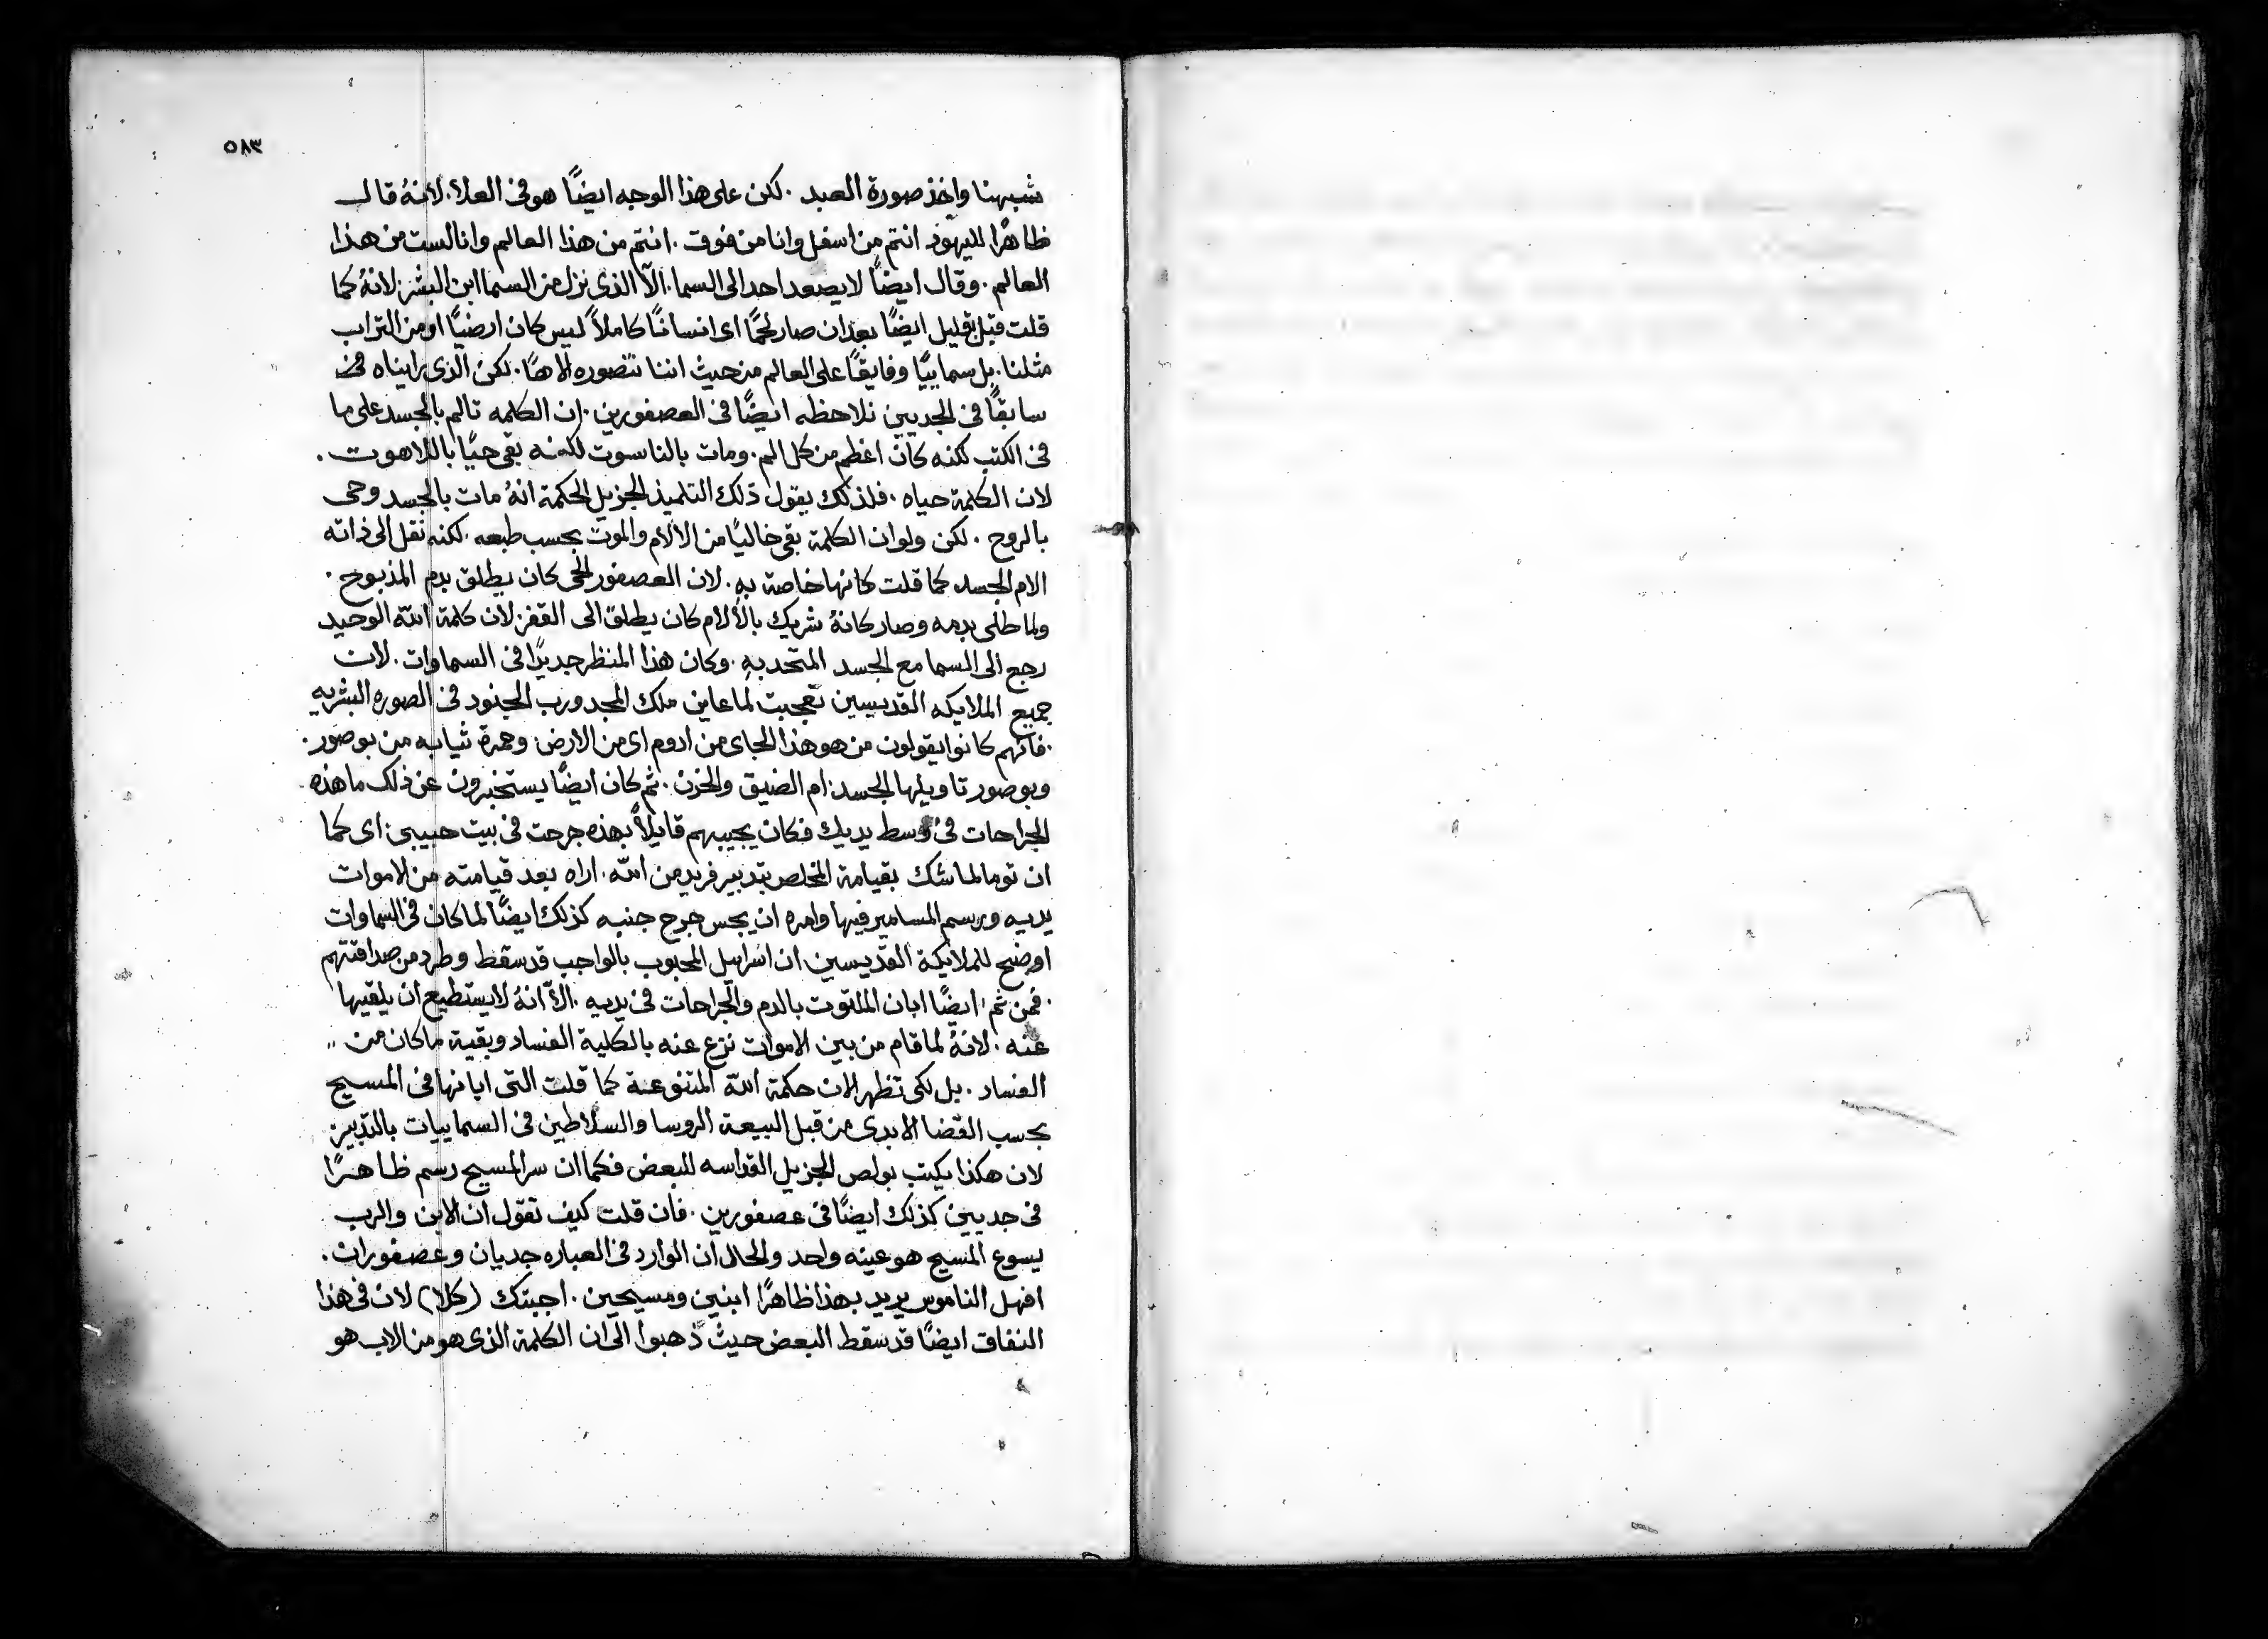 ٥٨٣
شبهنا واخذ صورة العبد . لكن على هذا الوجه ايضًا هو فى العلا . لانهُ قال
ظاهرًا لليهود انتم من اسفل وانا من فوق . انتم من هذا العالم وانا لست من هذا
العالم . وقال ايضًا لا يصعد احد الى السما . الّا الذى نزل من السما ابن البشر . لانهُ كما
قلت قبل بقليل ايضًا بعد ان صار لحمًا اى انسانًا كاملاً ليس كان ارضيًا او من التراب
مثلنا . بل سماييًا وفايقًا على العالم من حيث اننا نتصوره الاهًا . لكن الذى رايناه فى
سابقًا فى الجديين نلاحظه ايضًا فى العصفورين . ان الكلمه تالم بالجسد على ما
فى الكتب لكنه كان اعظم من كل الم . ومات بالناسوت لكنه بقى حيًا باللاهوت .
لان الكلمة حياه . فلذلك يقول ذلك التلميذ الجزيل الحكمة انهُ مات بالجسد وحى
بالروح . لكن ولو ان الكلمة بقى خاليًا من الالام والموت بحسب طبعه . لكنه نقل الى ذاته
الام الجسد كما قلت كانها خاصة به . لان العصفور الحى كان يطلق بدم المذبوح .
ولما طلى بدمه وصار كانهُ شريك بالالام كان يطلق الى القفر لان كلمة الله الوحيد
رجع الى السما مع الجسد المتحد به . وكان هذا المنظر جديدًا فى السماوات . لان
جميع الملايكه القديسين تعجبت لما عاين ملك المجد ورب الجنود فى الصوره البشريه
. فانهم كانوا يقولون من هو هذا الجاى من ادوم اى من الارض . وحمرة ثيابه من بوصور .
وبوصور تاويلها الجسد . ام الضيق والحزن . ثم كان ايضًا يستخبرون عن ذلك ما هذه
الجراحات فى وسط يديك فكان يجيبهم قايلاً بهذه جرحت فى بيت حبيبى . اى كما
ان توما لما شك بقيامة المخلص بتدبير فريد من الله . اراه بعد قيامته من الاموات
يديه ورسم المسامير فيها وامره ان يجس جرح جنبه كذلك ايضًا لما كان فى السماوات
اوضح للملايكة القديسين ان اسراييل المحبوب بالواجب قد سقط وطرد من صداقتهم
. فمن ثم ايضًا ابان الملتوت بالدم والجراحات فى يديه . الّا انهُ لا يستطيع ان يلقيها
عنه . لانهُ لما قام من بين الاموات نزع عنه بالكلية الفساد وبقية ما كان من
الفساد . بل لكى تظهر الان حكمة الله المتنوعة كما قلت التى ابانها فى المسيح
بحسب القضا الابدى من قبل البيعة الروسا والسلاطين فى السماييات بالتدبير
لان هكذا يكتب بولص الجزيل القداسه للبعض فكما ان سر المسيح رسم ظاهرًا
فى جديين كذلك ايضًا فى عصفورين . فان قلت كيف تقول ان الابن والرب
يسوع المسيح هو عينه واحد والحال ان الوارد فى العباره جديان وعصفوران .
افهل الناموس يريد بهذا ظاهرًا ابنين ومسيحين . اجبتك (كلا) لان فى هذا
النفاق ايضًا قد سقط البعض حيث ذهبوا الى ان الكلمة الذى هو من الاب هو